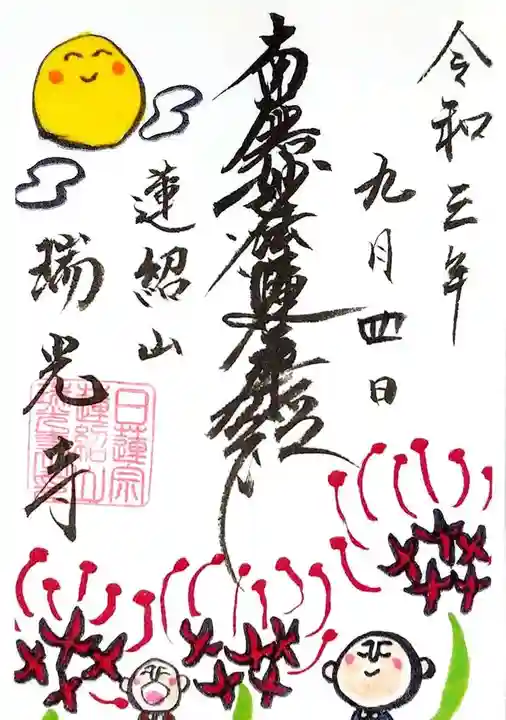 令和三年
九月四日
南無妙法蓮華経
蓮紹山
瑞光寺
日蓮宗
蓮紹山
瑞光寺